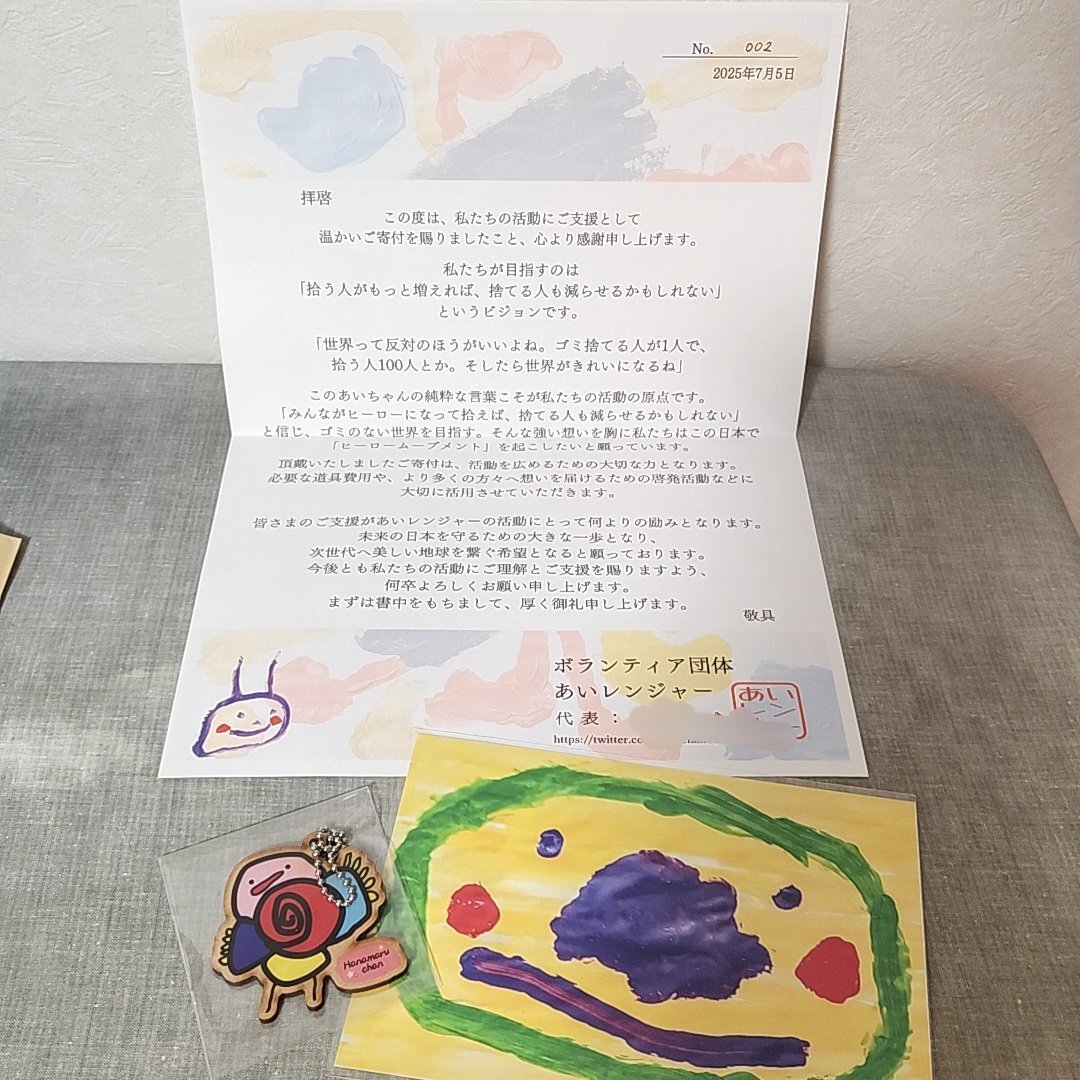 No. 002
2025年7月5日
拝啓
この度は、私たちの活動にご支援として
温かいご寄付を賜りましたこと、心より感謝申し上げます。
私たちが目指すのは
「拾う人がもっと増えれば、捨てる人も減らせるかもしれない」
というビジョンです。
「世界って反対のほうがいいよね。ゴミ捨てる人が1人で、
拾う人100人とか。そしたら世界がきれいになるね」
このあいちゃんの純粋な言葉こそが私たちの活動の原点です。
「みんながヒーローになって拾えば、捨てる人も減らせるかもしれない」
と信じ、ゴミのない世界を目指す。そんな強い想いを胸に私たちはこの日本で
「ヒーロームーブメント」を起こしたいと願っています。
頂戴いたしましたご寄付は、活動を広めるための大切な力となります。
必要な道具費用や、より多くの方々へ想いを届けるための啓発活動などに
大切に活用させていただきます。
皆さまのご支援があいレンジャーの活動にとって何よりの励みとなります。
未来の日本を守るための大きな一歩となり、
次世代へ美しい地球を繋ぐ希望となると願っております。
今後とも私たちの活動にご理解とご支援を賜りますよう、
何卒よろしくお願い申し上げます。
まずは書中をもちまして、厚く御礼申し上げます。
敬具
ボランティア団体
あいレンジャー
代表：
https://twitter.co
あい
Hanamaru
chan